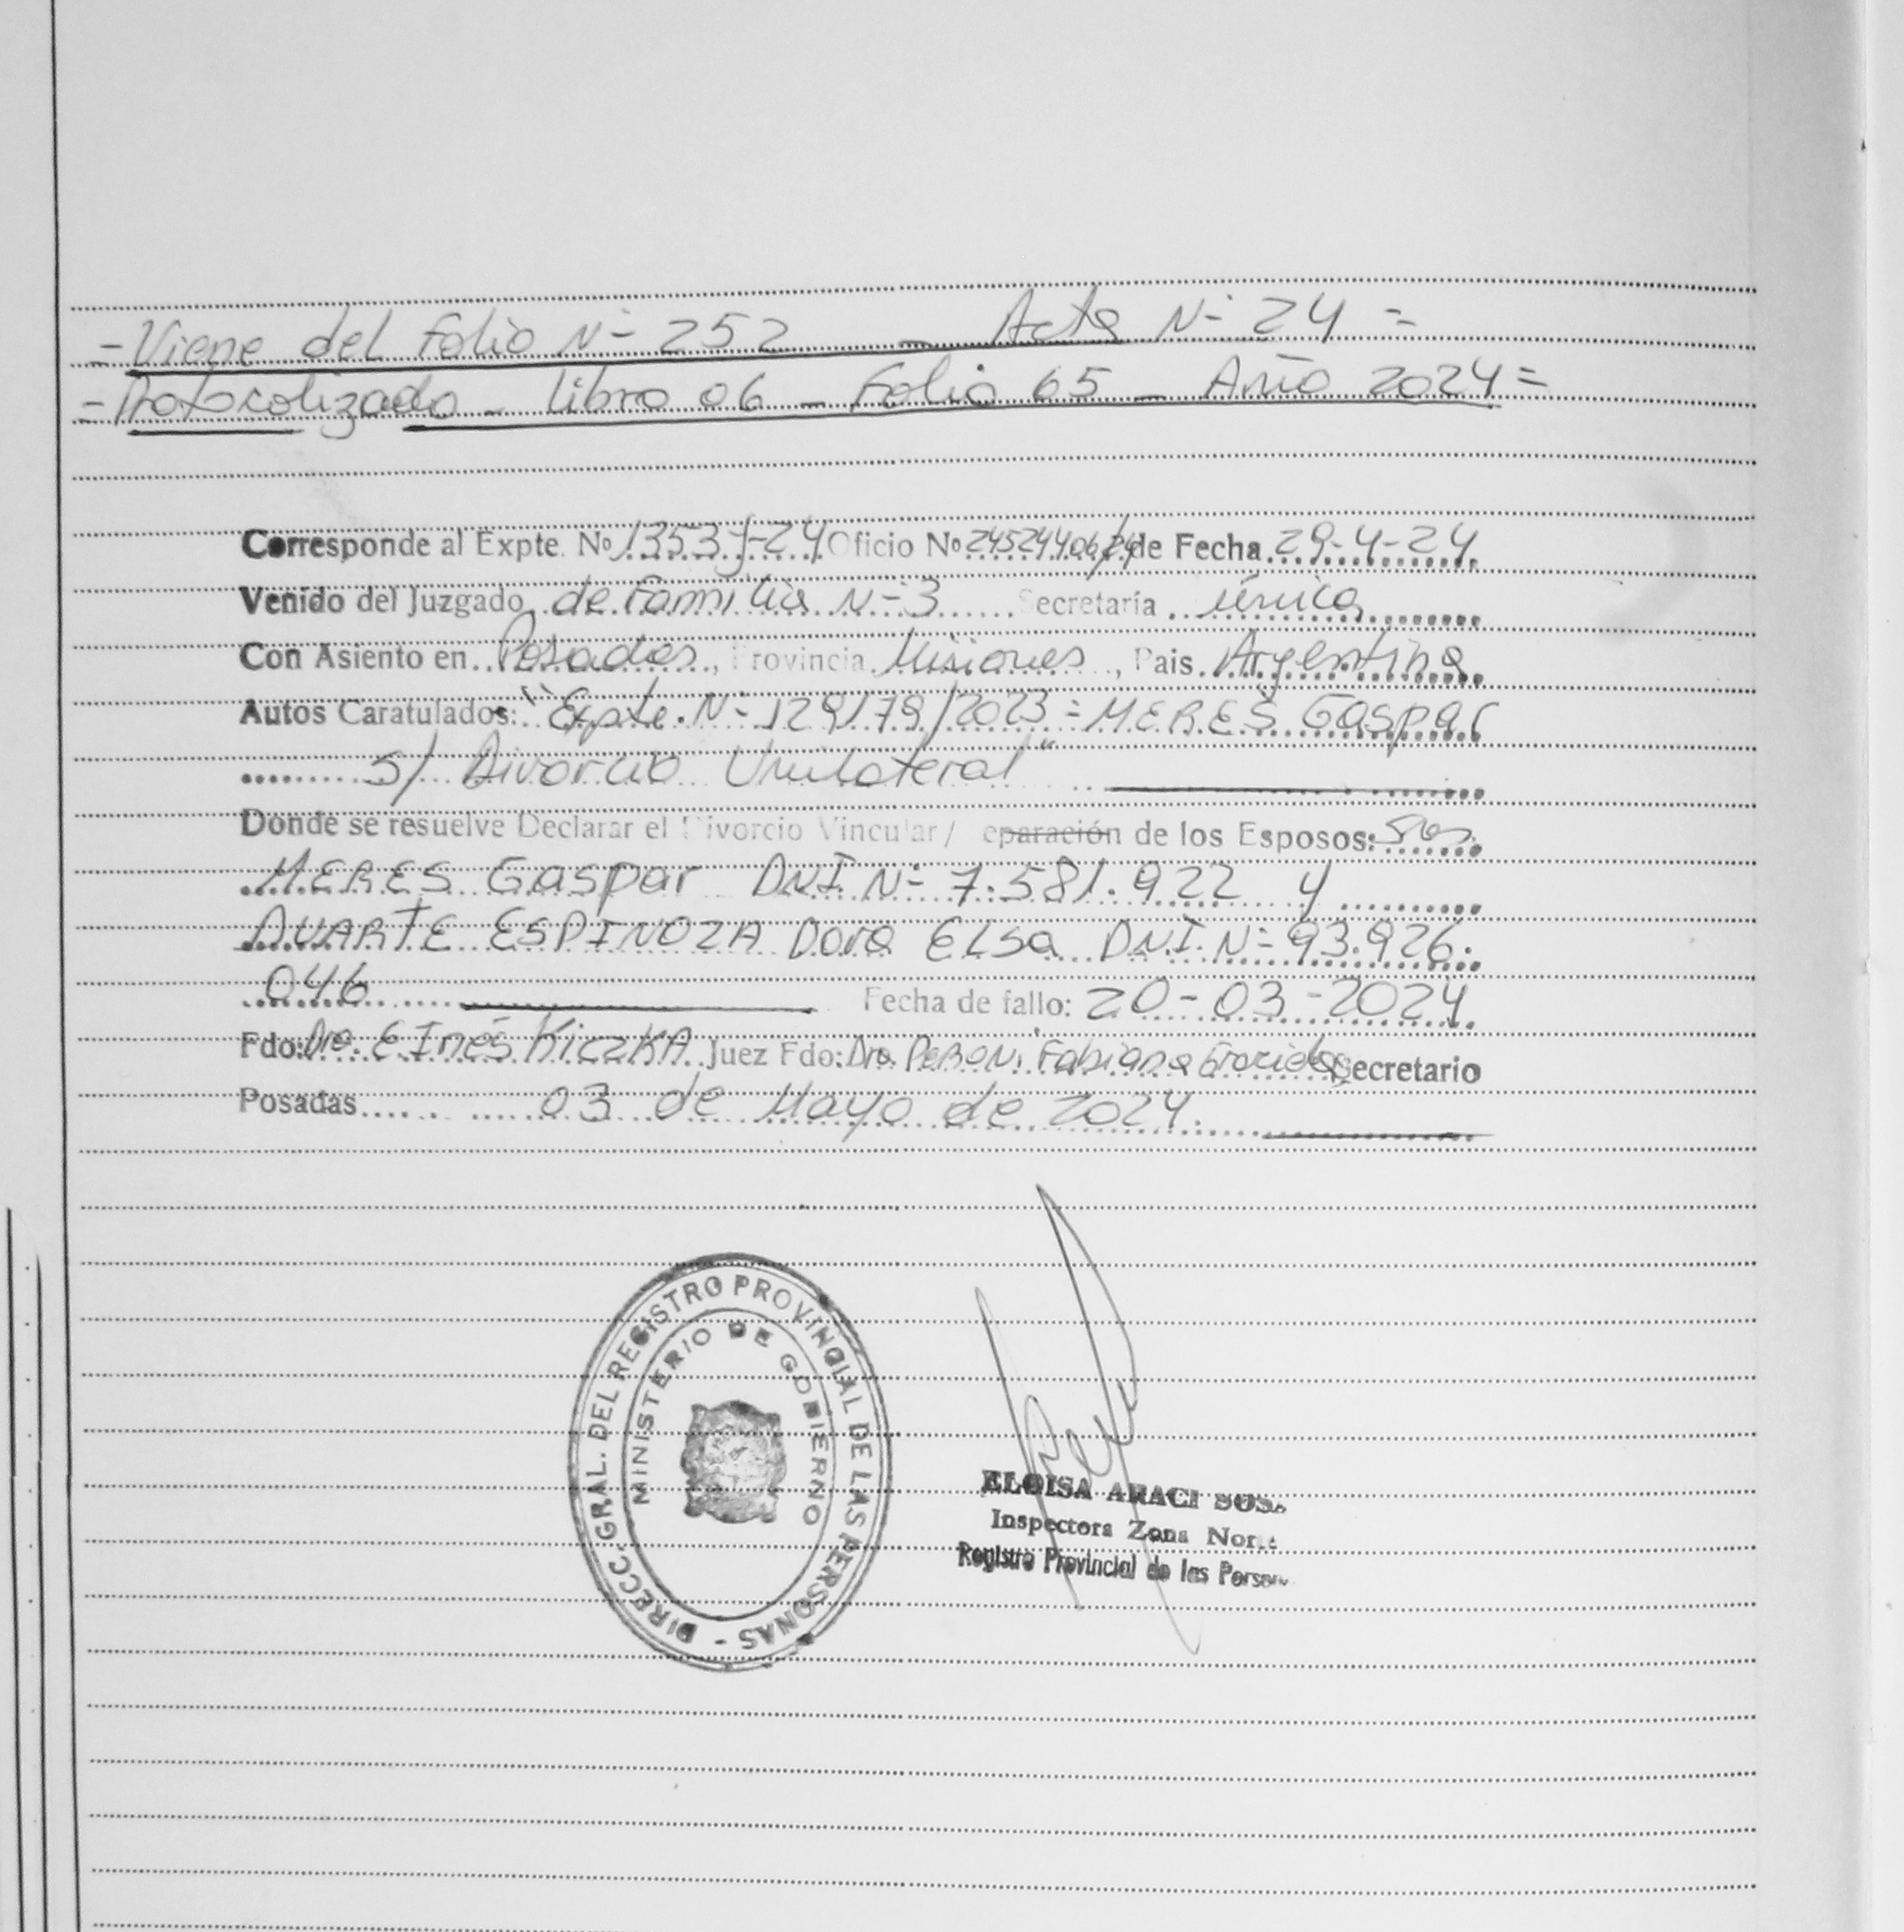 =Viene del Folio N= 252 - Acta N= 24 =
=Protocolizado - Libro 06 - Folio 65 - Año 2024=
Corresponde al Expte. Nº 1353-J-24 Oficio Nº 24524406/24 de Fecha 29-4-24
Venido del Juzgado de Familia N=3 Secretaría única
Con Asiento en Posadas, Provincia Misiones, Pais Argentina
Autos Caratulados: "Expte. N= 129179/2023 = MERES Gaspar
s/ Divorcio Unilateral"
Donde se resuelve Declarar el Divorcio Vincular/ eparación de los Esposos: Sres.
MERES Gaspar DNI N= 7.581.922 y
DUARTE ESPINOZA Dora ELSa DNI N= 93.926.
046 Fecha de fallo: 20-03-2024
Fdo: Dra. E Inés KiczKA Juez Fdo: Dra. PERONi Fabiana Graciela Secretario
Posadas 03 de Mayo de 2024.
DIRECC. GRAL. DEL REGISTRO PROVINCIAL DE LAS PERSONAS -
MINISTERIO DE GOBIERNO
ELOISA ARACI SOSA
Inspectora Zona Nor
Registro Provincial de las Person